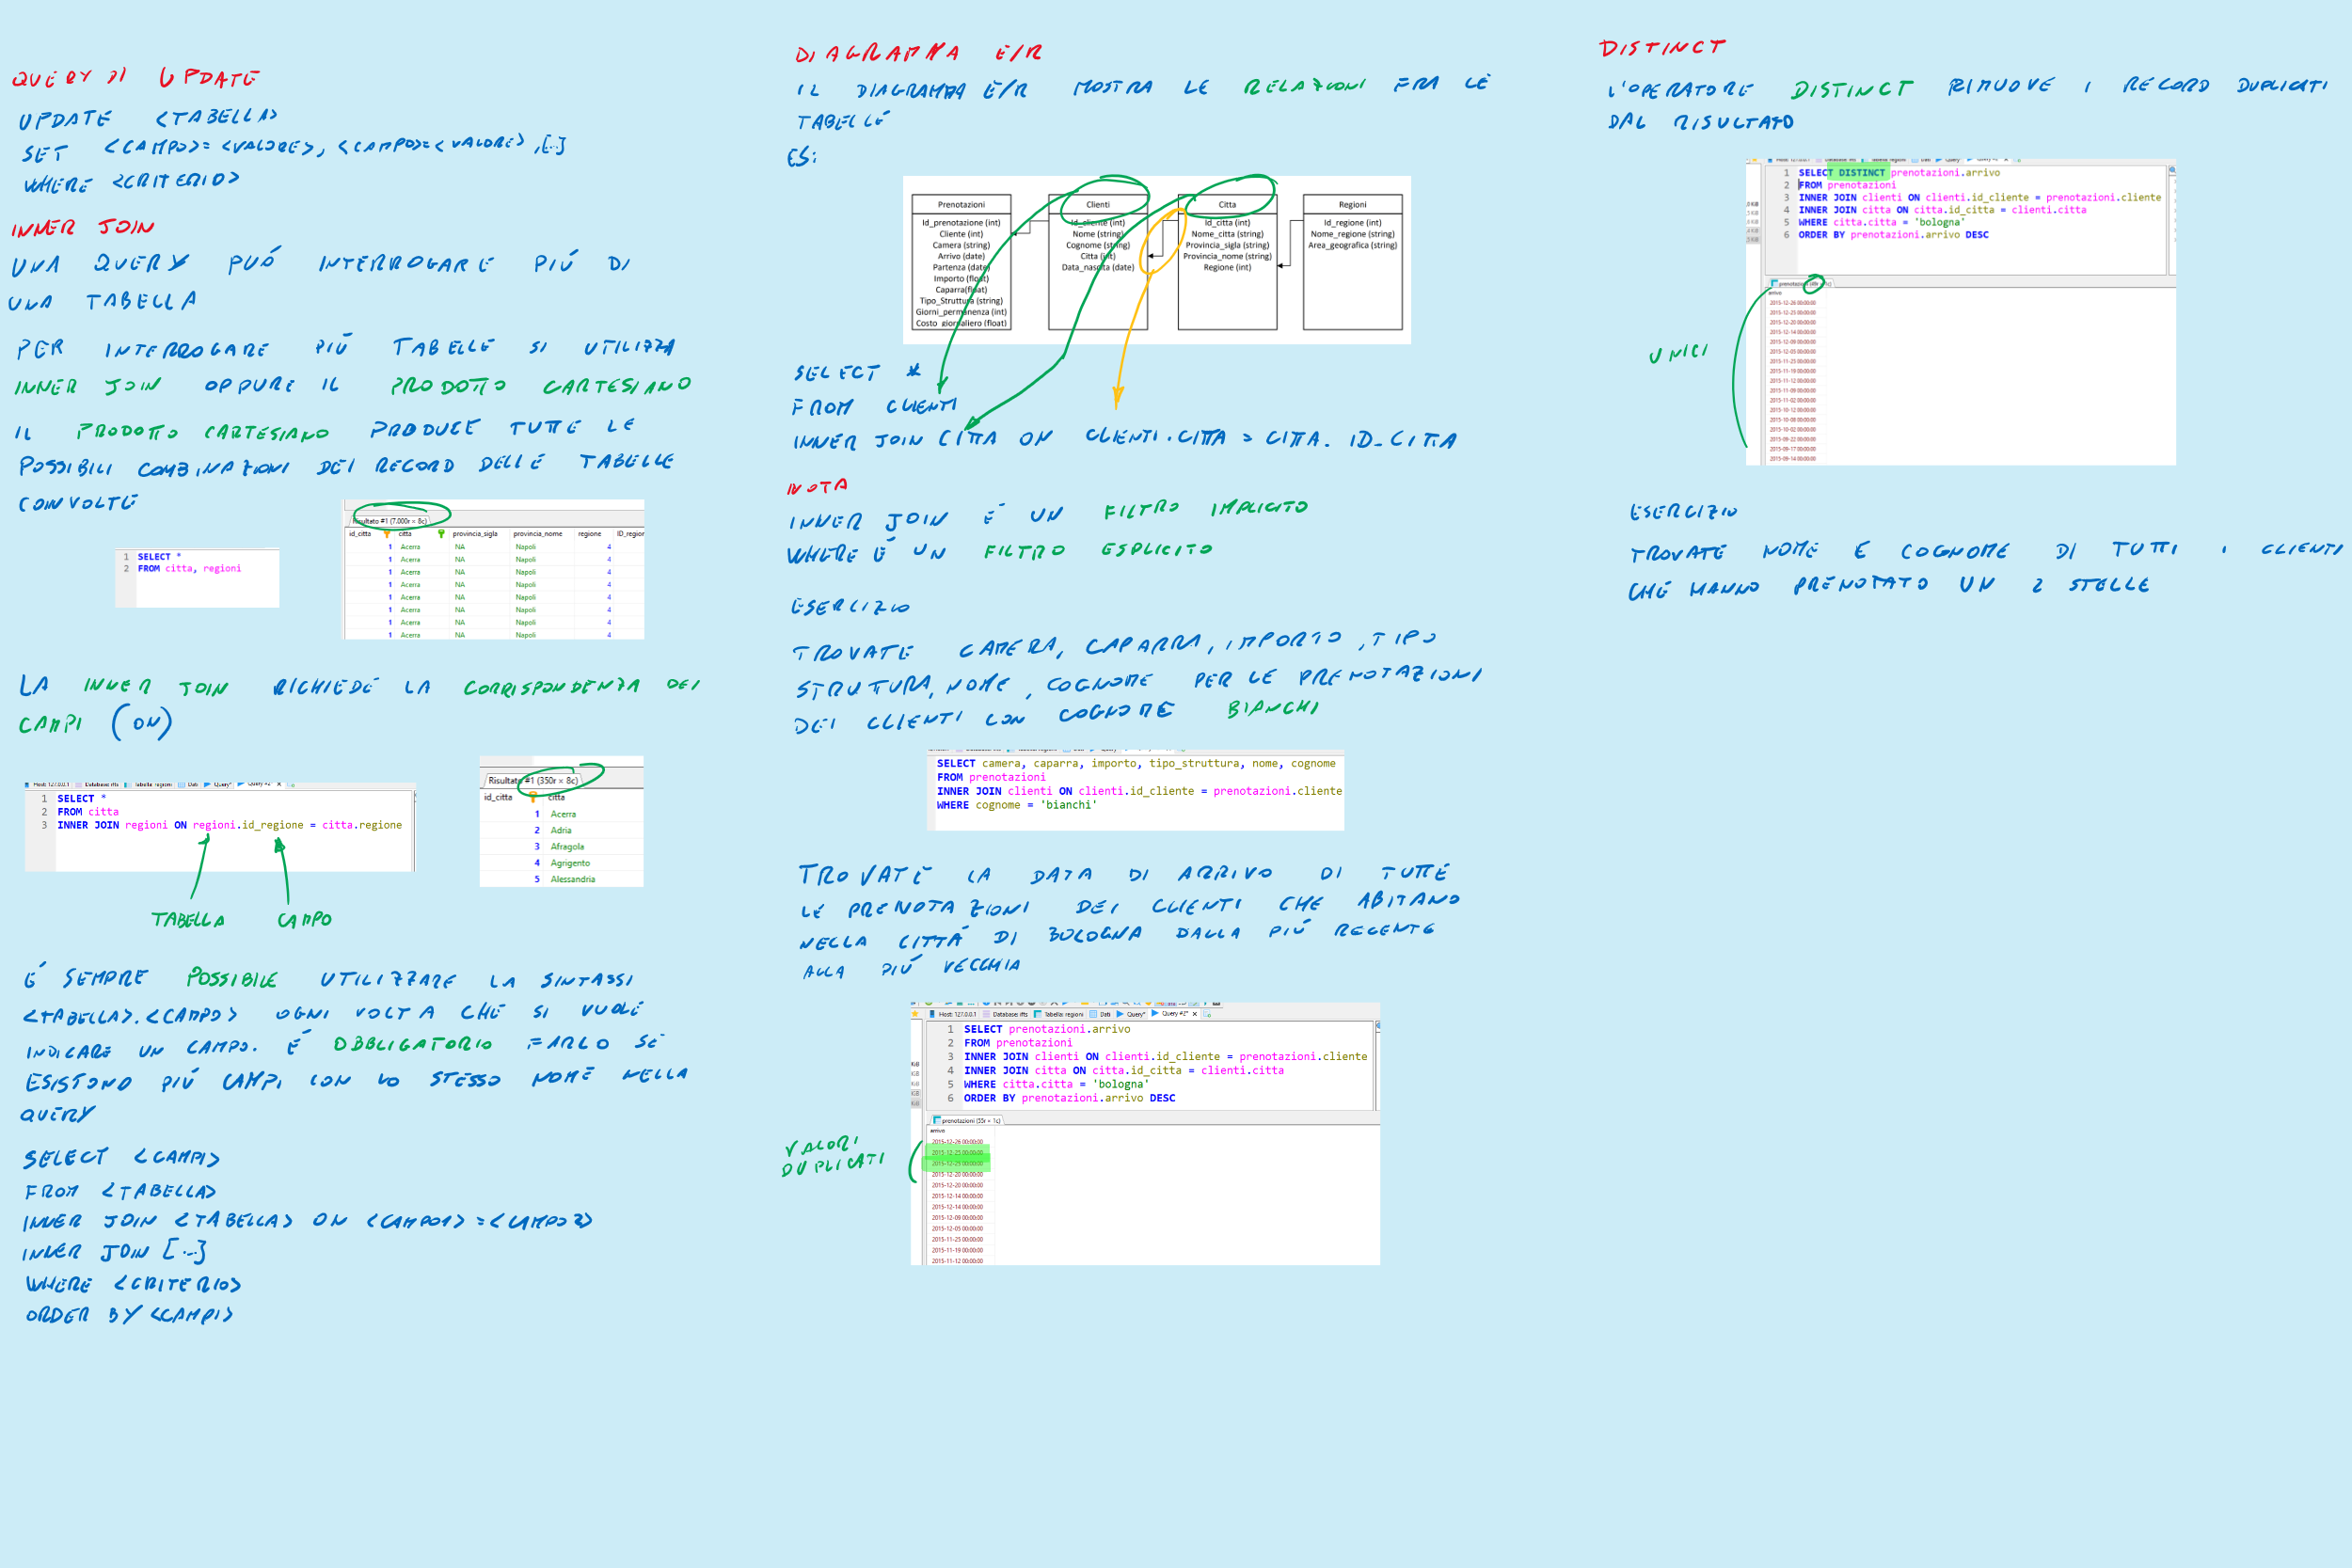 QUERY DI UPDATE
UPDATE <TABELLA>
SET <CAMPO>=<VALORE>, <CAMPO>=<VALORE>,[..]
WHERE <CRITERIO>
INNER JOIN
UNA QUERY PUÓ INTERROGARE PIÚ DI
UNA TABELLA
PER INTERROGARE PIÚ TABELLE SI UTILIZZA
INNER JOIN OPPURE IL PRODOTTO CARTESIANO
IL PRODOTTO CARTESIANO PRODUCE TUTTE LE
POSSIBILI COMBINAZIONI DEI RECORD DELLE TABELLE
COINVOLTE
1 SELECT *
2 FROM citta, regioni
Risultato #1 (7.000r × 8c)
id_citta citta provincia_sigla provincia_nome regione ID_region
1 Acerra NA Napoli 4
1 Acerra NA Napoli 4
1 Acerra NA Napoli 4
1 Acerra NA Napoli 4
1 Acerra NA Napoli 4
1 Acerra NA Napoli 4
1 Acerra NA Napoli 4
1 Acerra NA Napoli 4
LA INNER JOIN RICHIEDE LA CORRISPONDENZA DEI
CAMPI (ON)
Host: 127.0.0.1 Database: ifts Tabella: regioni Dati Query* Query #2*
1 SELECT *
2 FROM citta
3 INNER JOIN regioni ON regioni.id_regione = citta.regione
TABELLA CAMPO
Risultato #1 (350r × 8c)
id_citta citta
1 Acerra
2 Adria
3 Afragola
4 Agrigento
5 Alessandria
É SEMPRE POSSIBILE UTILIZZARE LA SINTASSI
<TABELLA>.<CAMPO> OGNI VOLTA CHE SI VUOLE
INDICARE UN CAMPO. É OBBLIGATORIO FARLO SE
ESISTONO PIÚ CAMPI CON LO STESSO NOME NELLA
QUERY
SELECT <CAMPI>
FROM <TABELLA>
INNER JOIN <TABELLA> ON <CAMPO1>=<CAMPO2>
INNER JOIN [...]
WHERE <CRITERIO>
ORDER BY <CAMPI>
DIAGRAMMA E/R
IL DIAGRAMMA E/R MOSTRA LE RELAZIONI FRA LE
TABELLE
ES:
Prenotazioni
Id_prenotazione (int)
Cliente (int)
Camera (string)
Arrivo (date)
Partenza (date)
Importo (float)
Caparra(float)
Tipo_Struttura (string)
Giorni_permanenza (int)
Costo_giornaliero (float)
Clienti
Id_cliente (int)
Nome (string)
Cognome (string)
Citta (int)
Data_nascita (date)
Citta
Id_citta (int)
Nome_citta (string)
Provincia_sigla (string)
Provincia_nome (string)
Regione (int)
Regioni
Id_regione (int)
Nome_regione (string)
Area_geografica (string)
SELECT *
FROM CLIENTI
INNER JOIN CITTA ON CLIENTI.CITTA = CITTA.ID_CITTA
NOTA
INNER JOIN É UN FILTRO IMPLICITO
WHERE É UN FILTRO ESPLICITO
ESERCIZIO
TROVATE CAMERA, CAPARRA, IMPORTO, TIPO
STRUTTURA, NOME, COGNOME PER LE PRENOTAZIONI
DEI CLIENTI CON COGNOME BIANCHI
SELECT camera, caparra, importo, tipo_struttura, nome, cognome
FROM prenotazioni
INNER JOIN clienti ON clienti.id_cliente = prenotazioni.cliente
WHERE cognome = 'bianchi'
TROVATE LA DATA DI ARRIVO DI TUTTE
LE PRENOTAZIONI DEI CLIENTI CHE ABITANO
NELLA CITTÁ DI BOLOGNA DALLA PIÚ RECENTE
ALLA PIÚ VECCHIA
Host: 127.0.0.1 Database: ifts Tabella: regioni Dati Query* Query #2*
1 SELECT prenotazioni.arrivo
2 FROM prenotazioni
3 INNER JOIN clienti ON clienti.id_cliente = prenotazioni.cliente
4 INNER JOIN citta ON citta.id_citta = clienti.citta
5 WHERE citta.citta = 'bologna'
6 ORDER BY prenotazioni.arrivo DESC
prenotazioni (55r × 1c)
arrivo
2015-12-26 00:00:00
2015-12-25 00:00:00
2015-12-25 00:00:00
2015-12-20 00:00:00
2015-12-20 00:00:00
2015-12-14 00:00:00
2015-12-14 00:00:00
2015-12-09 00:00:00
2015-12-05 00:00:00
2015-11-25 00:00:00
2015-11-19 00:00:00
2015-11-12 00:00:00
VALORI
DUPLICATI
DISTINCT
L'OPERATORE DISTINCT RIMUOVE I RECORD DUPLICATI
DAL RISULTATO
1 SELECT DISTINCT prenotazioni.arrivo
2 FROM prenotazioni
3 INNER JOIN clienti ON clienti.id_cliente = prenotazioni.cliente
4 INNER JOIN citta ON citta.id_citta = clienti.citta
5 WHERE citta.citta = 'bologna'
6 ORDER BY prenotazioni.arrivo DESC
arrivo
2015-12-26 00:00:00
2015-12-25 00:00:00
2015-12-20 00:00:00
2015-12-14 00:00:00
2015-12-09 00:00:00
2015-12-05 00:00:00
2015-11-25 00:00:00
2015-11-19 00:00:00
2015-11-12 00:00:00
2015-11-09 00:00:00
2015-11-02 00:00:00
2015-10-12 00:00:00
2015-10-08 00:00:00
2015-10-02 00:00:00
2015-09-22 00:00:00
2015-09-17 00:00:00
2015-09-14 00:00:00
UNICI
ESERCIZIO
TROVATE NOME E COGNOME DI TUTTI I CLIENTI
CHE HANNO PRENOTATO UN 2 STELLE